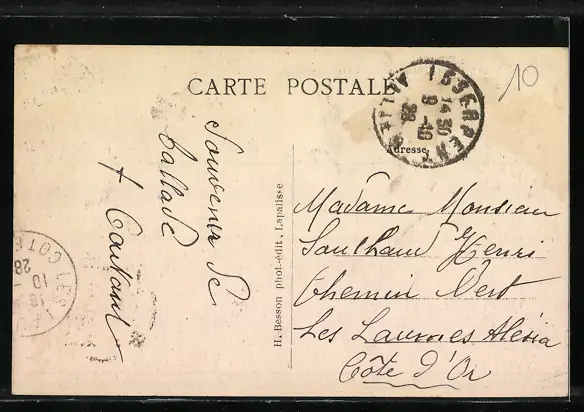 CARTE POSTALE
10
14 30
9 -10
28
Adresse
Souvenir de
ballade
H. Besson phot-édit. Lapalisse
Madame Monsieur
Henri
Chemin Vert
Les Laumes Alésia
Côte d'Or
LES L
10 -
28
COTE